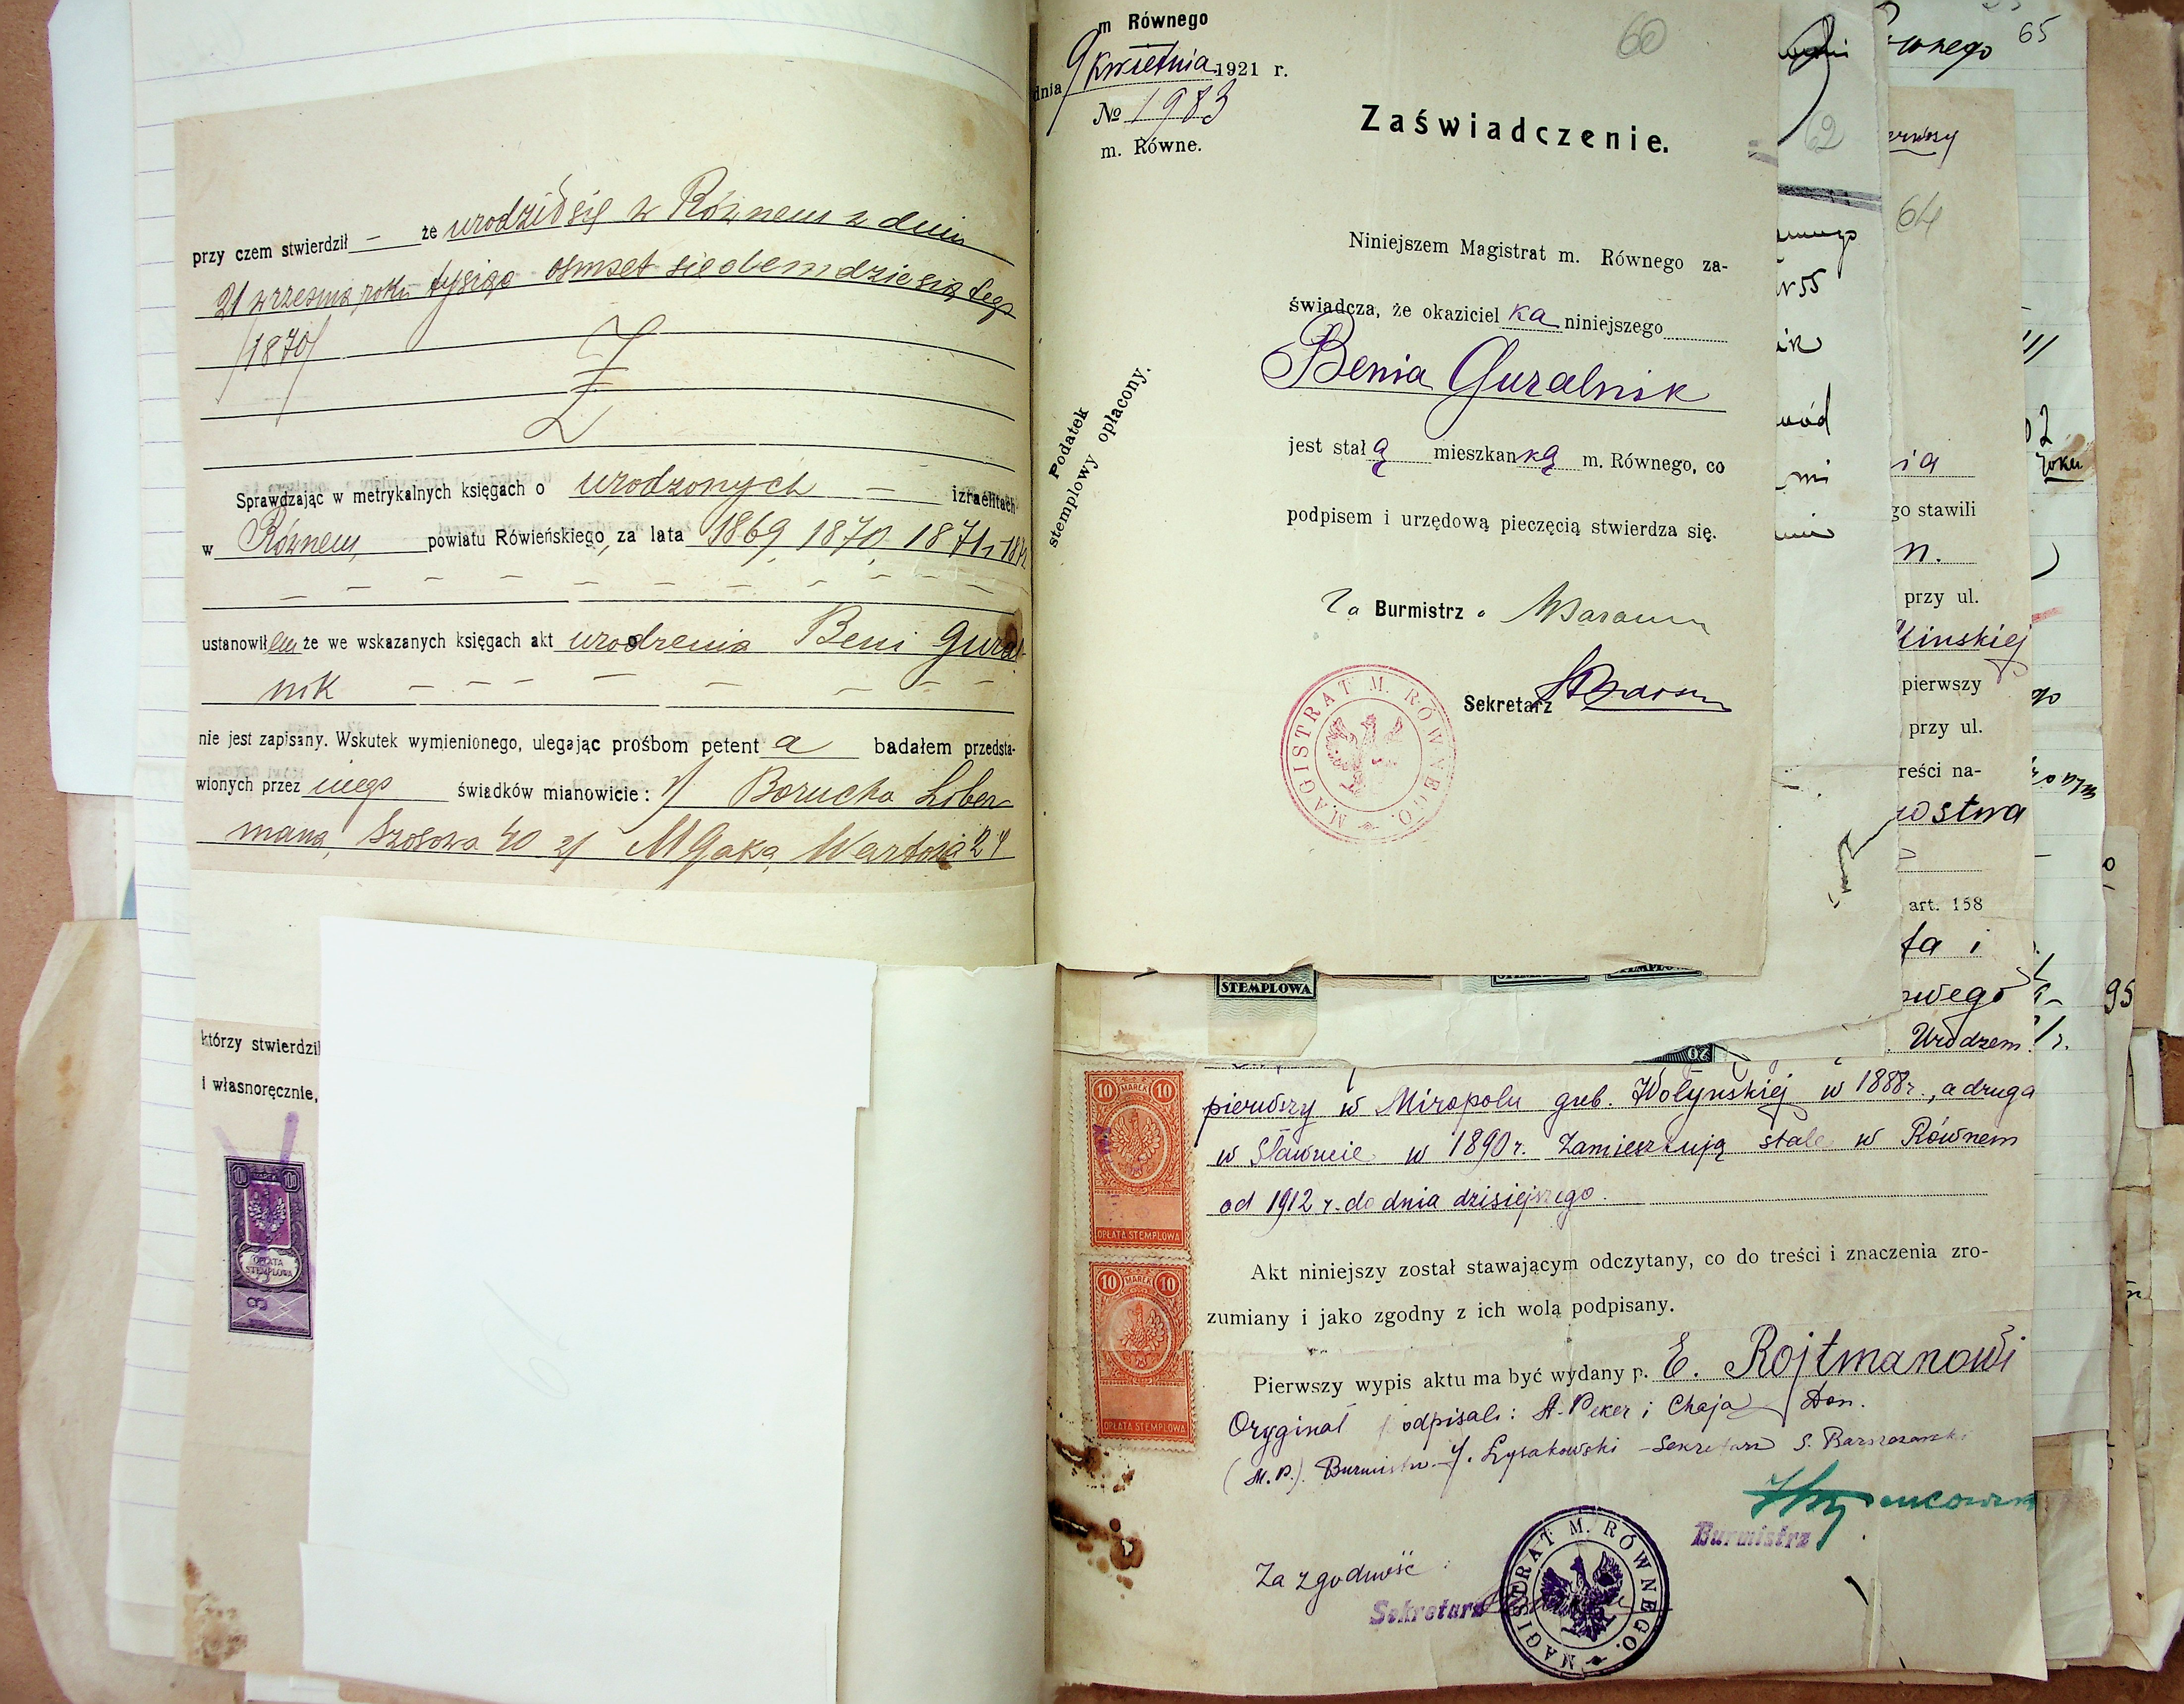 przy czem stwierdził — że urodził się w Równem w dniu
21 września roku tysiąc osmset siedemdziesiątego
/1870/
Sprawdzając w metrykalnych księgach o urodzonych — izraelitach
w Równem, powiatu Rówieńskiego, za lata 1869, 1870, 1871 i
ustanowiłem że we wskazanych księgach akt urodzenia Beni Gural-
nik — — — — — — —
nie jest zapisany. Wskutek wymienionego, ulegając prośbom petent a badałem przedsta-
wionych przez niego świadków mianowicie: 1/ Borucha Liber-
mana, Szosowa 40 2/ M Gaka, Wartowa 24
którzy stwierdzil
i własnoręcznie,
OPŁATA
STEMPLOWA
m Równego
dnia 9 kwietnia 1921 r.
№ 1983
m. Równe.
60
Zaświadczenie.
Podatek
stemplowy opłacony.
Niniejszem Magistrat m. Równego za-
świadcza, że okaziciel ka niniejszego
Benia Guralnik
jest stał ą mieszkan ką m. Równego, co
podpisem i urzędową pieczęcią stwierdza się.
Za Burmistrz a
Sekretarz
MAGISTRAT M. RÓWNEGO.
STEMPLOWA
STEMPLOWA
20
10 MAREK 10
OPŁATA STEMPLOWA
10 MAREK 10
OPŁATA STEMPLOWA
pierwszy w Miropolu gub. Wołyńskiej w 1888 r., a druga
w Sławucie w 1890 r. Zamieszkują stale w Równem
od 1912 r. do dnia dzisiejszego.
Akt niniejszy został stawającym odczytany, co do treści i znaczenia zro-
zumiany i jako zgodny z ich wolą podpisany.
Pierwszy wypis aktu ma być wydany p. E. Rojtmanowi
Oryginał podpisali: A. Peker i Chaja Don.
(M.P.). Burmistrz J. Łysakowski - Sekretarz S.
Burmistrz
Za zgodność:
Sekretarz
MAGISTRAT M. RÓWNEGO.
62
55
64
ia
go stawili
n.
przy ul.
pierwszy
przy ul.
reści na-
art. 158
ta i
owego
Urodzeni
65
wnego
roku
95